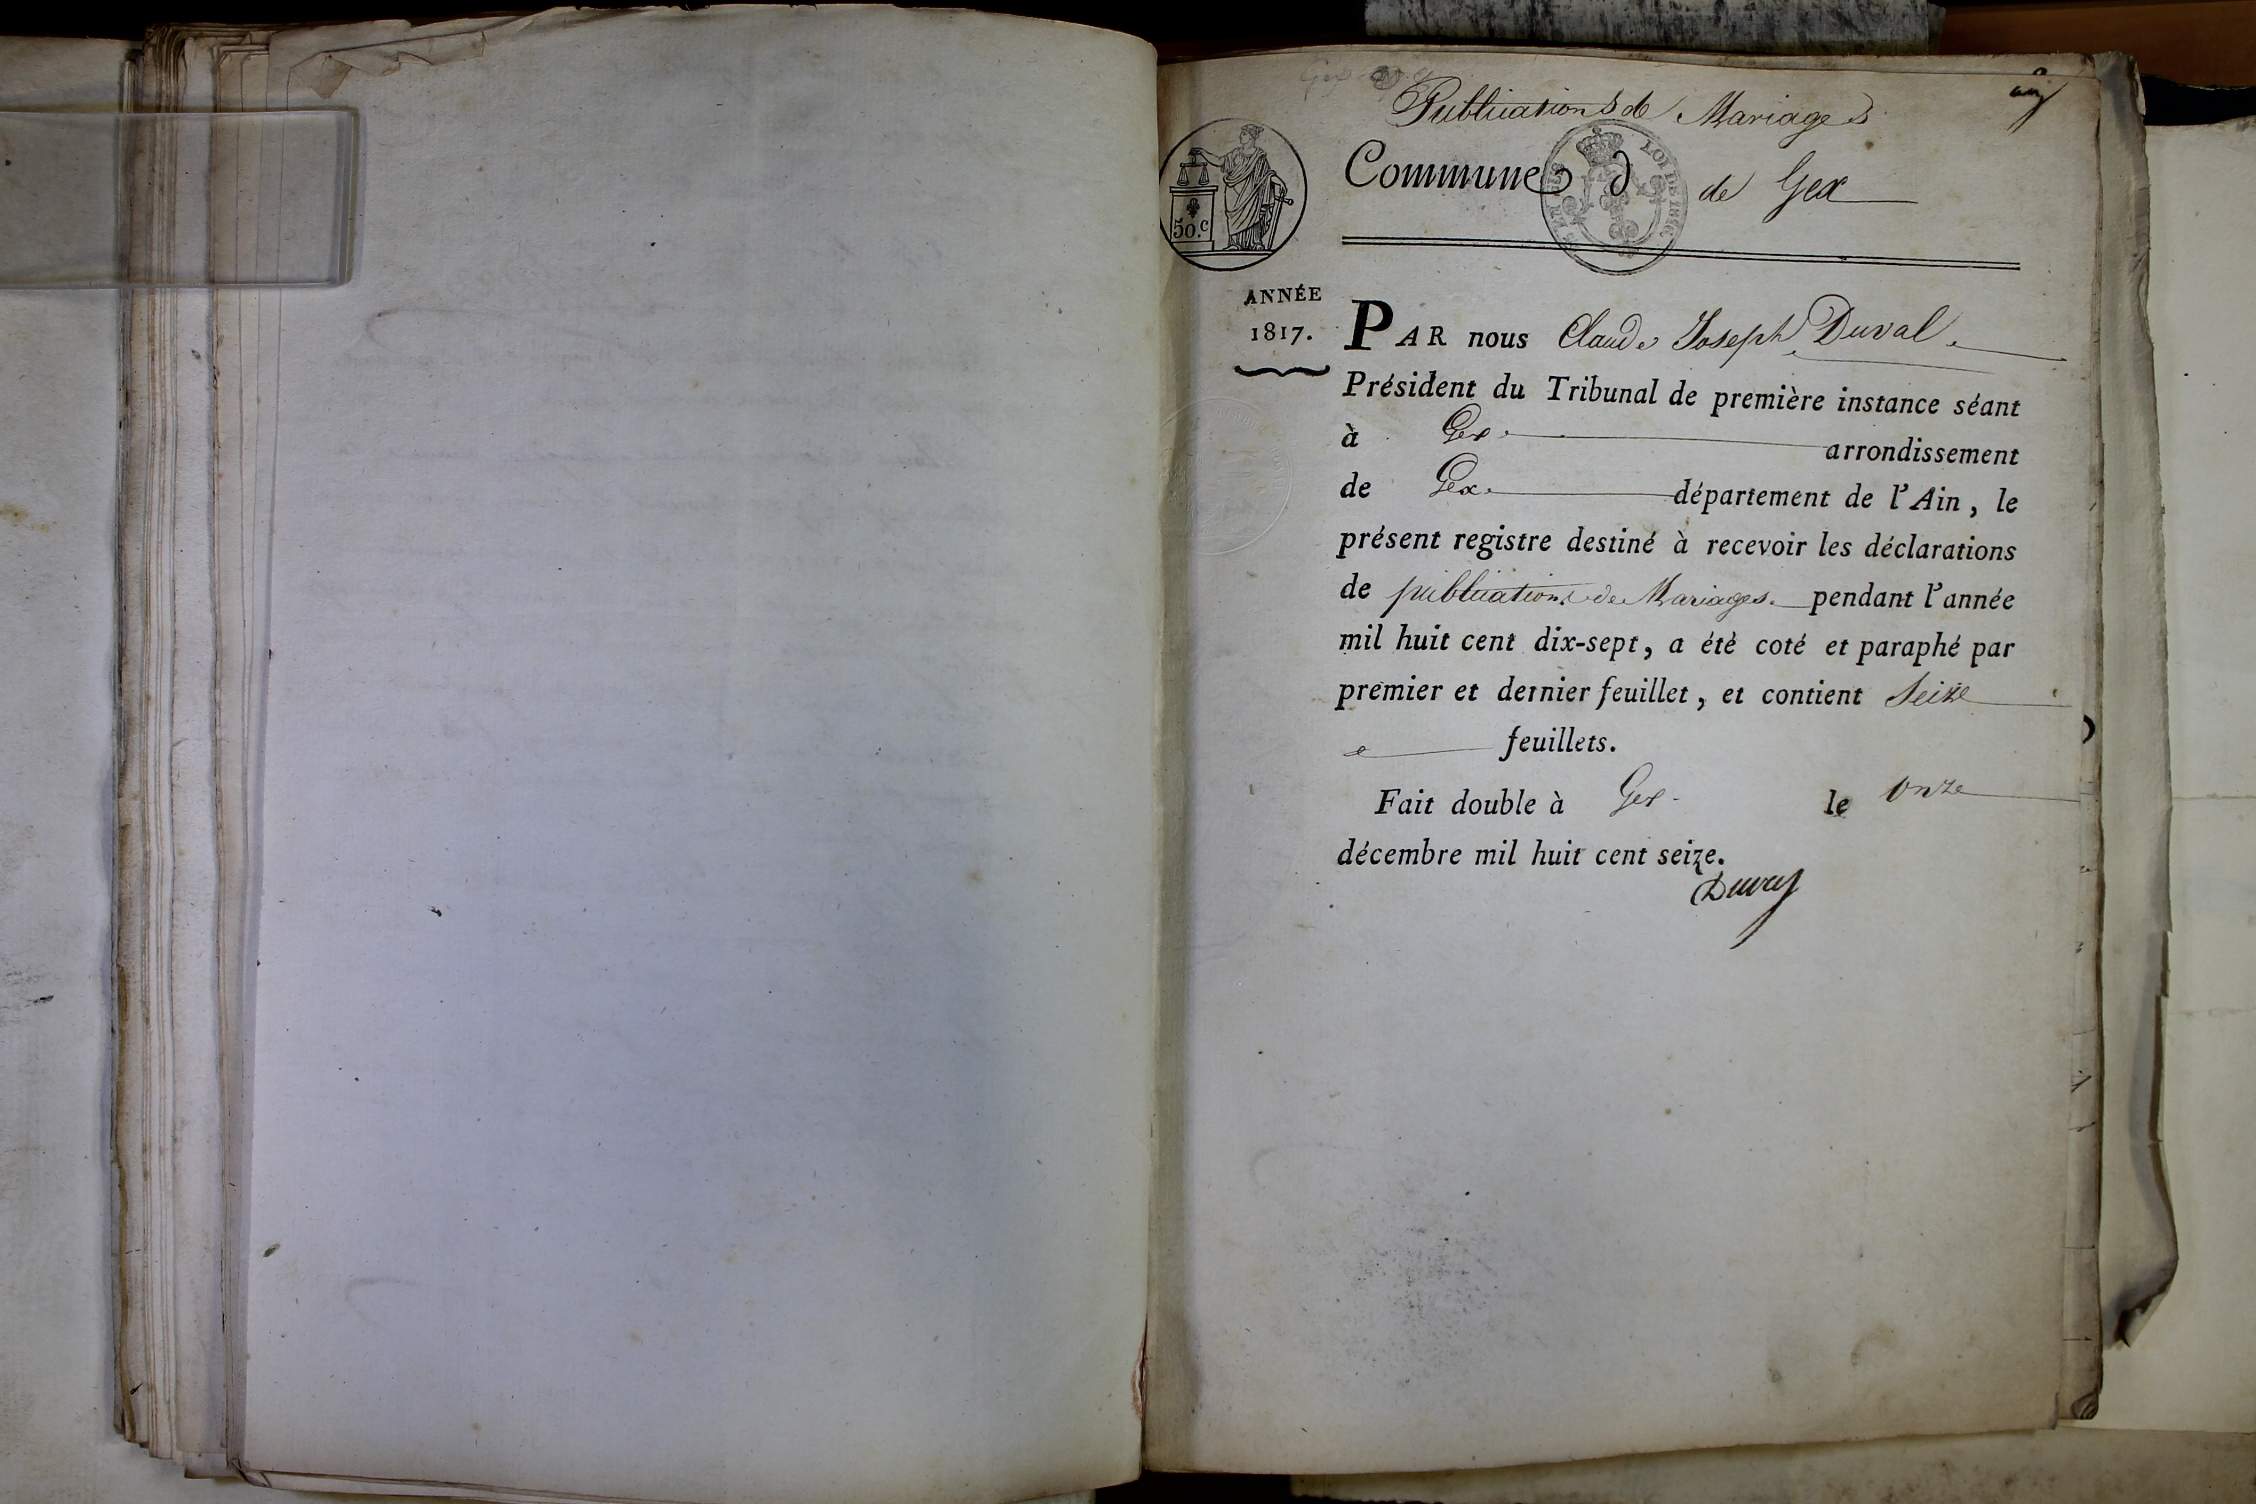 Publications de Mariages
Commune d de Gex
50.c
LOI DE 1816
ANNÉE
1817.
PAR nous Claude Joseph Duval.
Président du Tribunal de première instance séant
à Gex. arrondissement
de Gex. département de l'Ain, le
présent registre destiné à recevoir les déclarations
de publications de Mariages. pendant l'année
mil huit cent dix-sept, a été coté et paraphé par
premier et dernier feuillet, et contient Seize
feuillets.
Fait double à Gex. le onze
décembre mil huit cent seize.
Duval